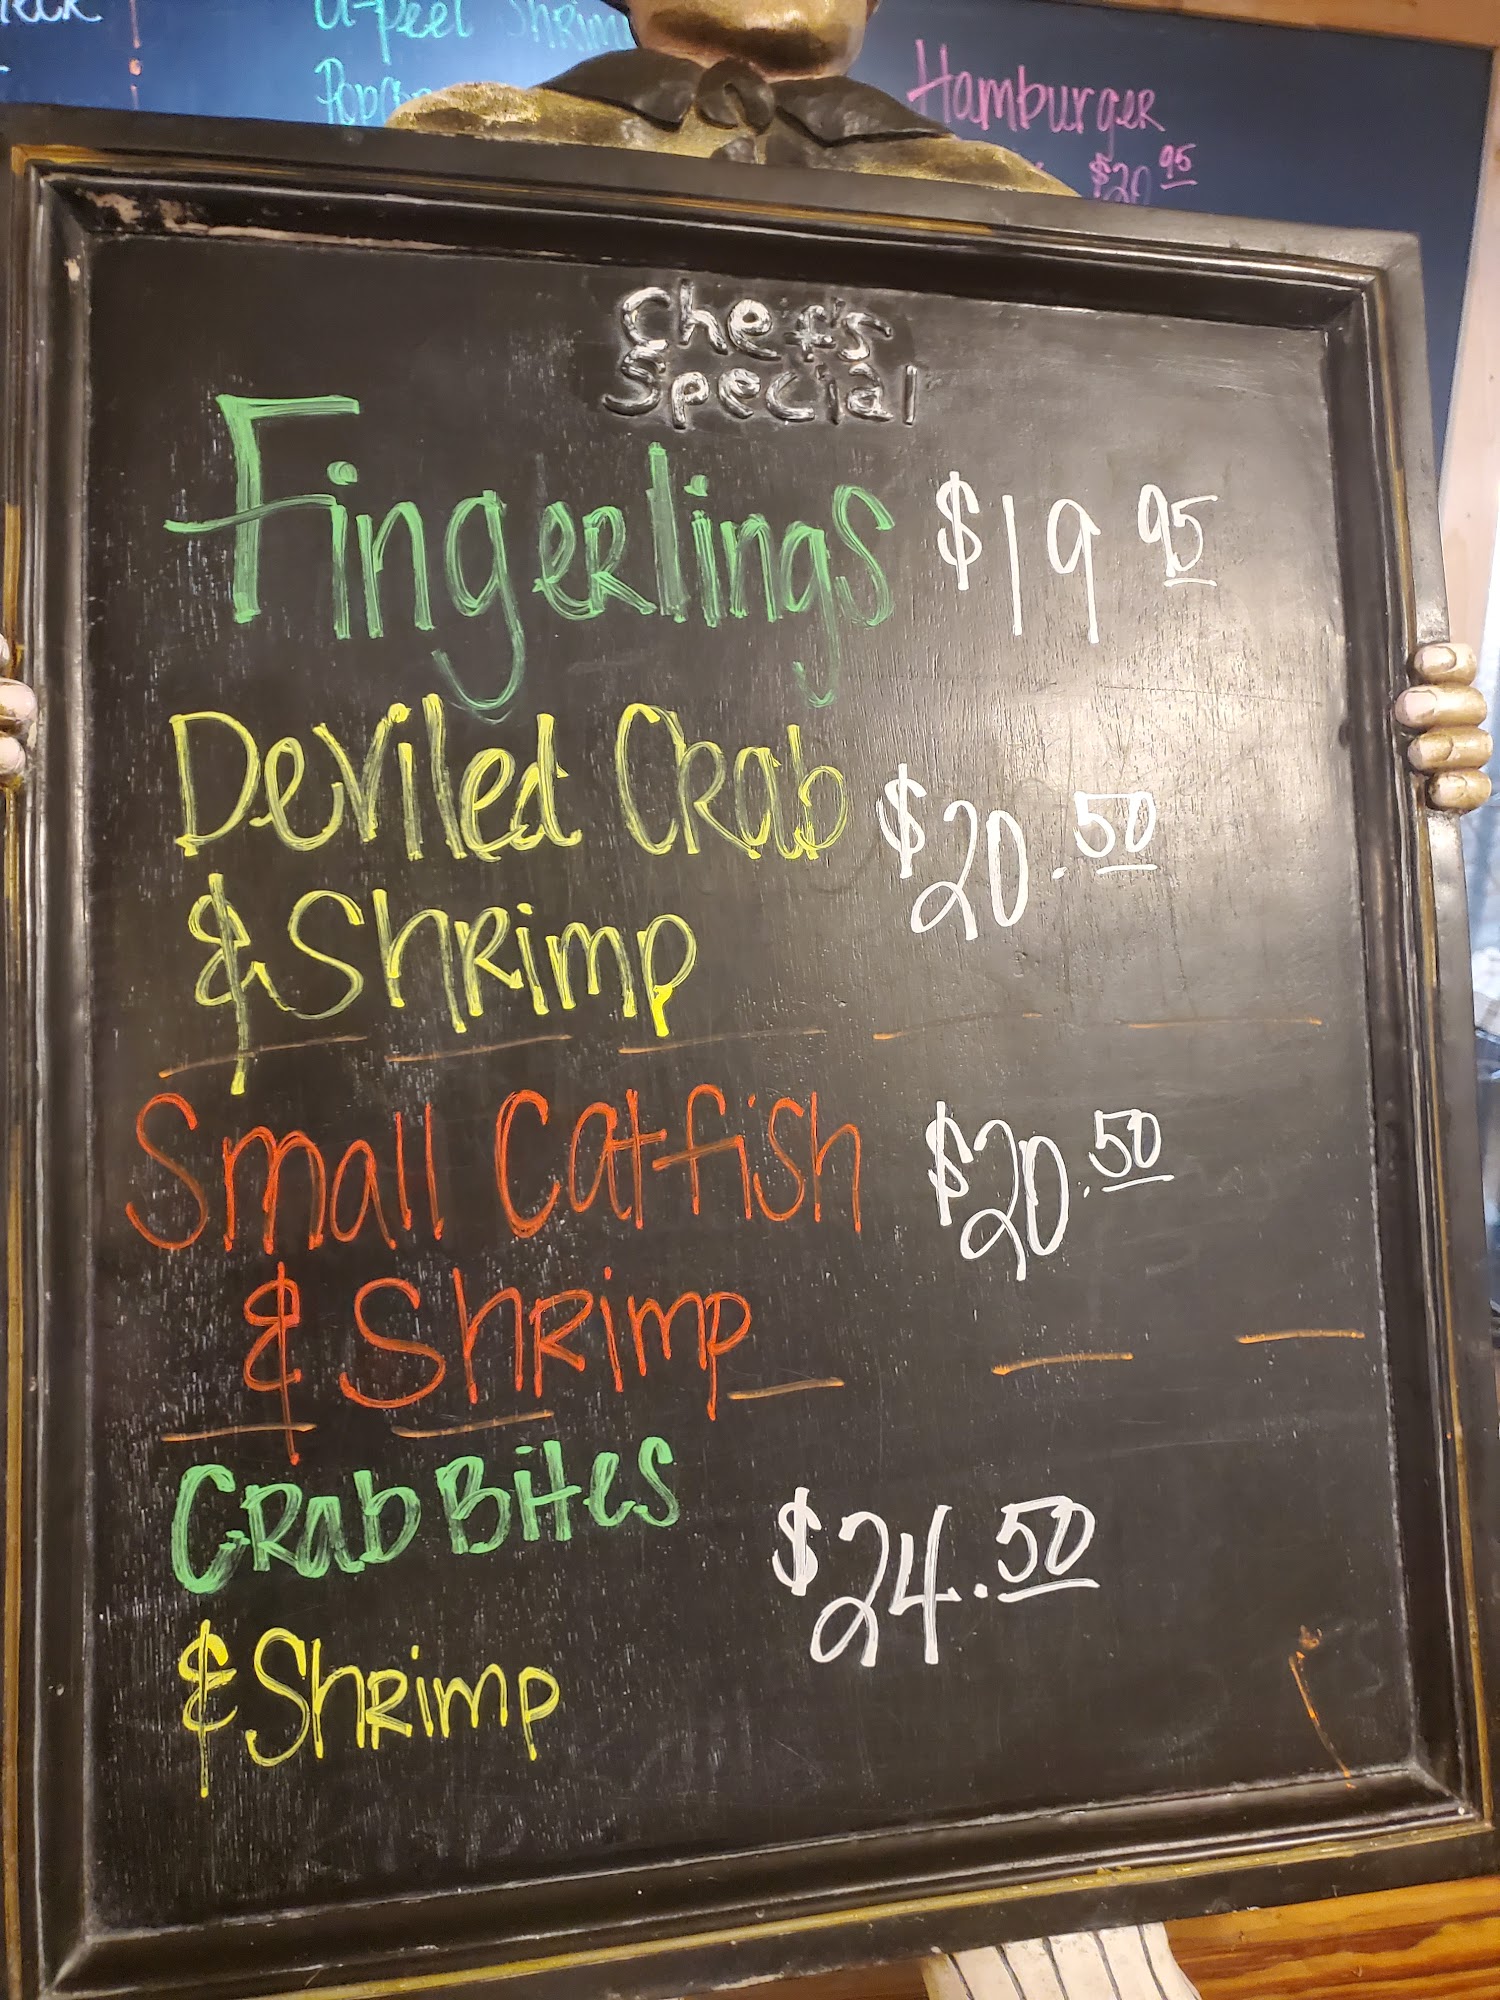 U-Peel Shrimp
Hamburger
$20 95
Chef's
Special
Fingerlings $19 95
Deviled Crab $20.50
& Shrimp
Small Catfish $20.50
& Shrimp
Crab Bites $24.50
& Shrimp